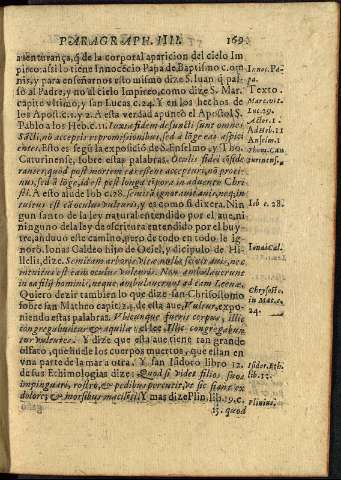 PARAGRAPH. IIII. 169
auenturança, q̃ de la corporal aparicion del cielo Im
pireo: assi lo tiene Innocẽcio Papa de Baptismo c. om-
nis, y para enseñarnos esto mismo dize S. Iuan q̃ pas-
so al Padre, y no al cielo Impireo, como dize S. Mar.
capite vltimo, y san Lucas c. 24. Y en los hechos de
los Apost. c. 1. y 2. A esta verdad apuntò el Apostol S.
Pablo a los Heb. c. 11. Iuxta fidem defuncti sunt omnes
isti, non acceptis repromissionibus, sed à longe eas aspici-
entes. Esto es segũ la exposiciõ de S. Enselmo, y Tho.
Caturinense, sobre estas palabras. Oculis fidei cõside-
rantes, quod post mortem eas essent accepturi, nõ proxi-
mus, sed à lõge, id est post longa tẽpora in aduentu Chri-
sti. A esto alude Iob c. 28. semitã ignorauit auis, neq; in-
tuitus est eã oculus vulturis, y es como si dixera. Nin
gun santo de la ley natural entendido por el aue, ni
ninguno de la ley de escritura entendido por el buy-
tre, anduuo este camino, pero de todo en todo le ig-
norò. Ionas Caldeo hijo de Oziel, y dicipulo de Hi-
llelis, dize. Semitam arboris vitæ nõ la sciuit auis, nec
inueniens est eam oculus vulturis. Non ambulauerunt
in ea filij hominis, neque ambulauerunt ad eam Leenæ.
Quiero dezir tambien lo que dize san Chrisostomo
sobre san Matheo capit. 24. de esta aue, Vultur, expo-
niendo estas palabras. Vbicunque fueris corpus, illic
congregabuntur & aquilæ: et sec. Illic congregabun
tur vultures. Y dize que esta aue tiene tan grande
olfato, que huele los cuerpos muertos, que estan en
vna parte de la mar a otra. Y san Isidoro libro 12.
de sus Echimologias dize: Quod si videt filios suos
impinguari, rostro, & pedibus percutit, vt sic fiant ex
dolore, & morsibus macilẽti. Y mas dize Plin. lib. 19. c.
15. quod
Innoc. Pa-
pa.
Texto.
Marc. vlt.
Luc. 29.
Actor. 1.
Ad Heb. 11
Anselm. 1
Thom. Cau
turinens.
Iob c. 28.
Ionas Cal.
Chrysosto.
in Mat. co.
24.
Isidor. Eth.
lib. 12.
Plinius.